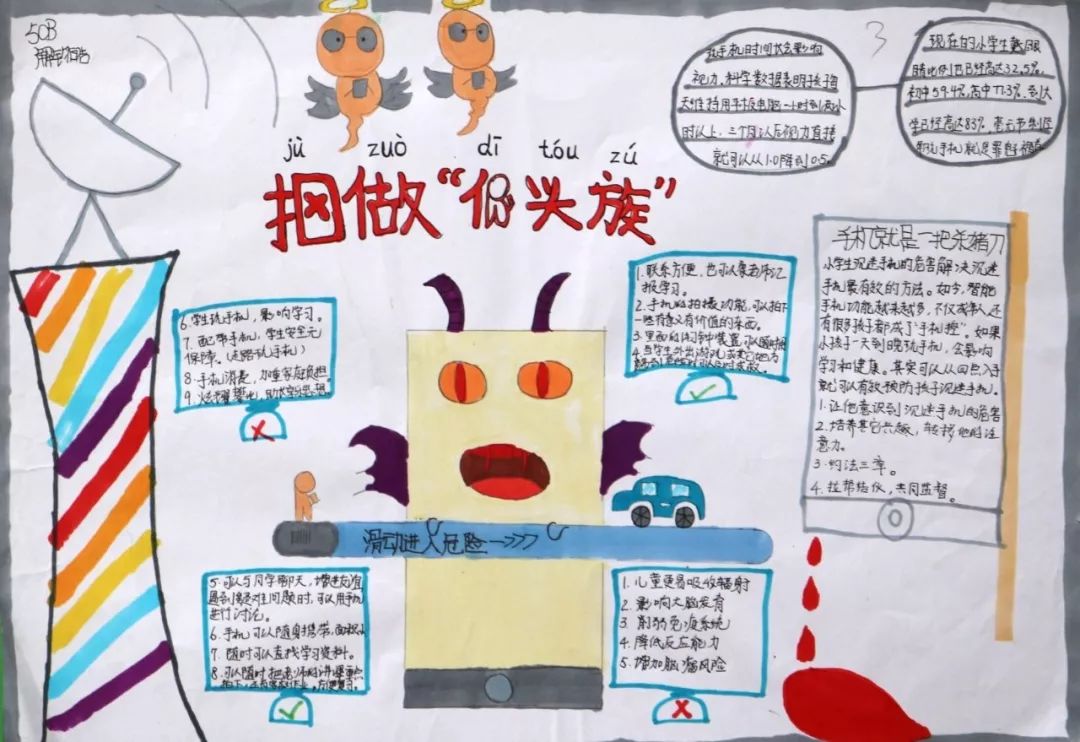 50B
3
jù zuò dī tóu zú
捆做“低头族”
玩手机时间长会影响
视力，科学数据表明孩子每
天维持用平板电脑一小时到两小
时以上，三个月以后视力直接
就可以从1.0降到0.5。
现在的小学生戴眼
睛比例已经高达32.5%，
初中59.4%，高中77.3%，到大
学已经高达83%，
6.学生玩手机，影响学习。
7.配带手机，学生安全无
保障。（走路玩手机）
8.手机消费，加重家庭负担
9.炫耀攀比，
1.联系方便，也可以像老师汇
报学习。
2.手机的拍摄功能，可以拍下
一些有意义有价值的东西。
3.里面的闹钟装置可以随时提
手机就是一把杀猪刀
小学生沉迷手机的危害解决沉迷
手机最有效的方法。如今，智能
手机功能越来越多，不仅成年人还
有很多孩子都成了“手机控”。如果
小孩子一天到晚玩手机，会影响
学习和健康。其实可以从四点入手
就可以有效预防孩子沉迷手机。
1.让他意识到沉迷手机的危害
2.培养其它兴趣，转移他的注
意力。
3.约法三章。
4.拉帮结伙，共同监督。
滑动进入危险—>>>
5.可以与同学聊天，增进友谊
遇到疑难问题时，可以用手机
进行讨论。
6.手机可以随身携带，面积小
7.随时可以查找学习资料。
8.可以随时把老师的讲课重点
拍下，
1.儿童更易吸收辐射
2.影响大脑发育
3.削弱免疫系统
4.降低反应能力
5.增加脑瘤风险